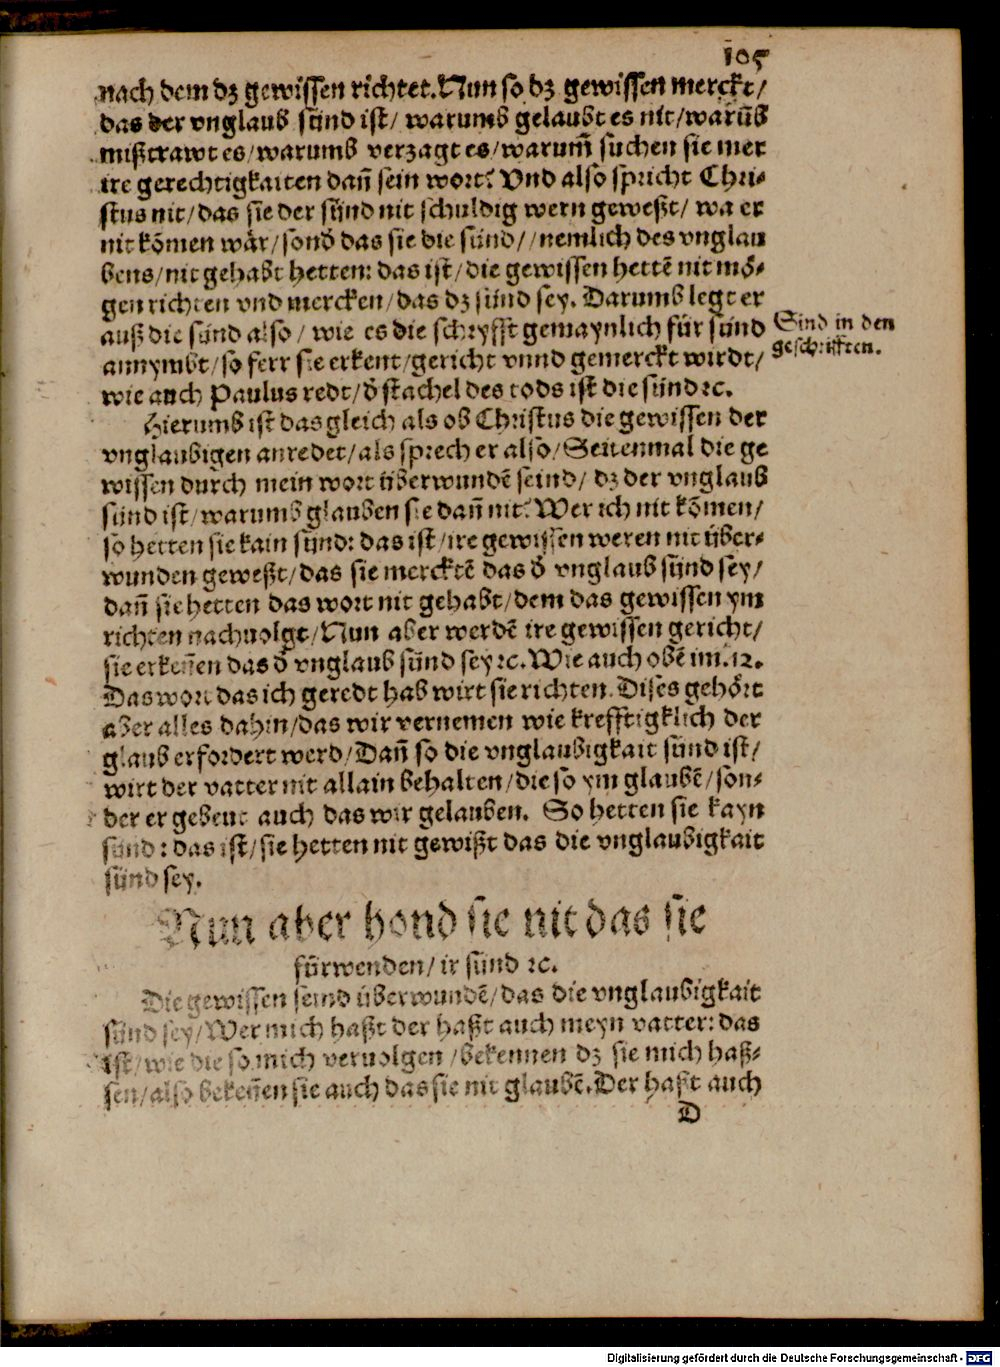 105
nach dem dz gewissen richtet. Nun so dz gewissen merckt/
das der vnglaub sünd ist/ warumb gelaubt es nit/warũb
mißtrawt es/warumb verzagt es/warum̃ suchen sie mer
ire gerechtigkaiten dañ sein wort? Vnd also spricht Chri-
stus nit/das sie der sünd nit schuldig wern geweßt/ wa er
nit kõmen wår/sond̓ das sie die sünd//nemlich des vnglau
bens/nit gehabt hetten: das ist/die gewissen hettẽ nit mö-
gen richten vnd mercken/das dz sünd sey. Darumb legt er
auß die sünd also/ wie es die schryfft gemaynlich für sünd
annymbt/so ferr sie erkent/gericht vnnd gemerckt wirdt/
wie auch Paulus redt/d̓ stachel des tods ist die sünd ꝛc.
Sind in den
geschrifften.
Hierumb ist das gleich als ob Christus die gewissen der
vnglaubigen anredet/als sprech er also/Seitenmal die ge
wissen durch mein wort überwundẽ seind/ dz der vnglaub
sünd ist/warumb glauben sie dañ nit? Wer ich nit kõmen/
so hetten sie kain sünd: das ist/ire gewissen weren nit über-
wunden geweßt/das sie mercktẽ das d̓ vnglaub sünd sey/
dañ sie hetten das wort nit gehabt/dem das gewissen ym
richten nachuolgt/Nun aber werdẽ ire gewissen gericht/
sie erkeñen das d̓ vnglaub sünd sey ꝛc. Wie auch obẽ im. 12.
Das wort das ich geredt hab wirt sie richten. Dises gehört
aber alles dahin/das wir vernemen wie krefftigklich der
glaub erfordert werd/Dañ so die vnglaubigkait sünd ist/
wirt der vatter nit allain behalten/die so ym glaubẽ/son-
der er gebeut auch das wir gelauben. So hetten sie kayn
sünd: das ist/sie hetten nit gewißt das die vnglaubigkait
sünd sey.
Nun aber hond sie nit das sie
fürwenden/ ir sünd ꝛc.
Die gewissen seind überwundẽ/das die vnglaubigkait
sünd sey/Wer mich haßt der haßt auch meyn vatter: das
ist/wie die so mich veruolgen/bekennen dz sie mich haß-
sen/also bekeñen sie auch das sie nit glaubẽ. Der haßt auch
D
Digitalisierung gefördert durch die Deutsche Forschungsgemeinschaft - DFG